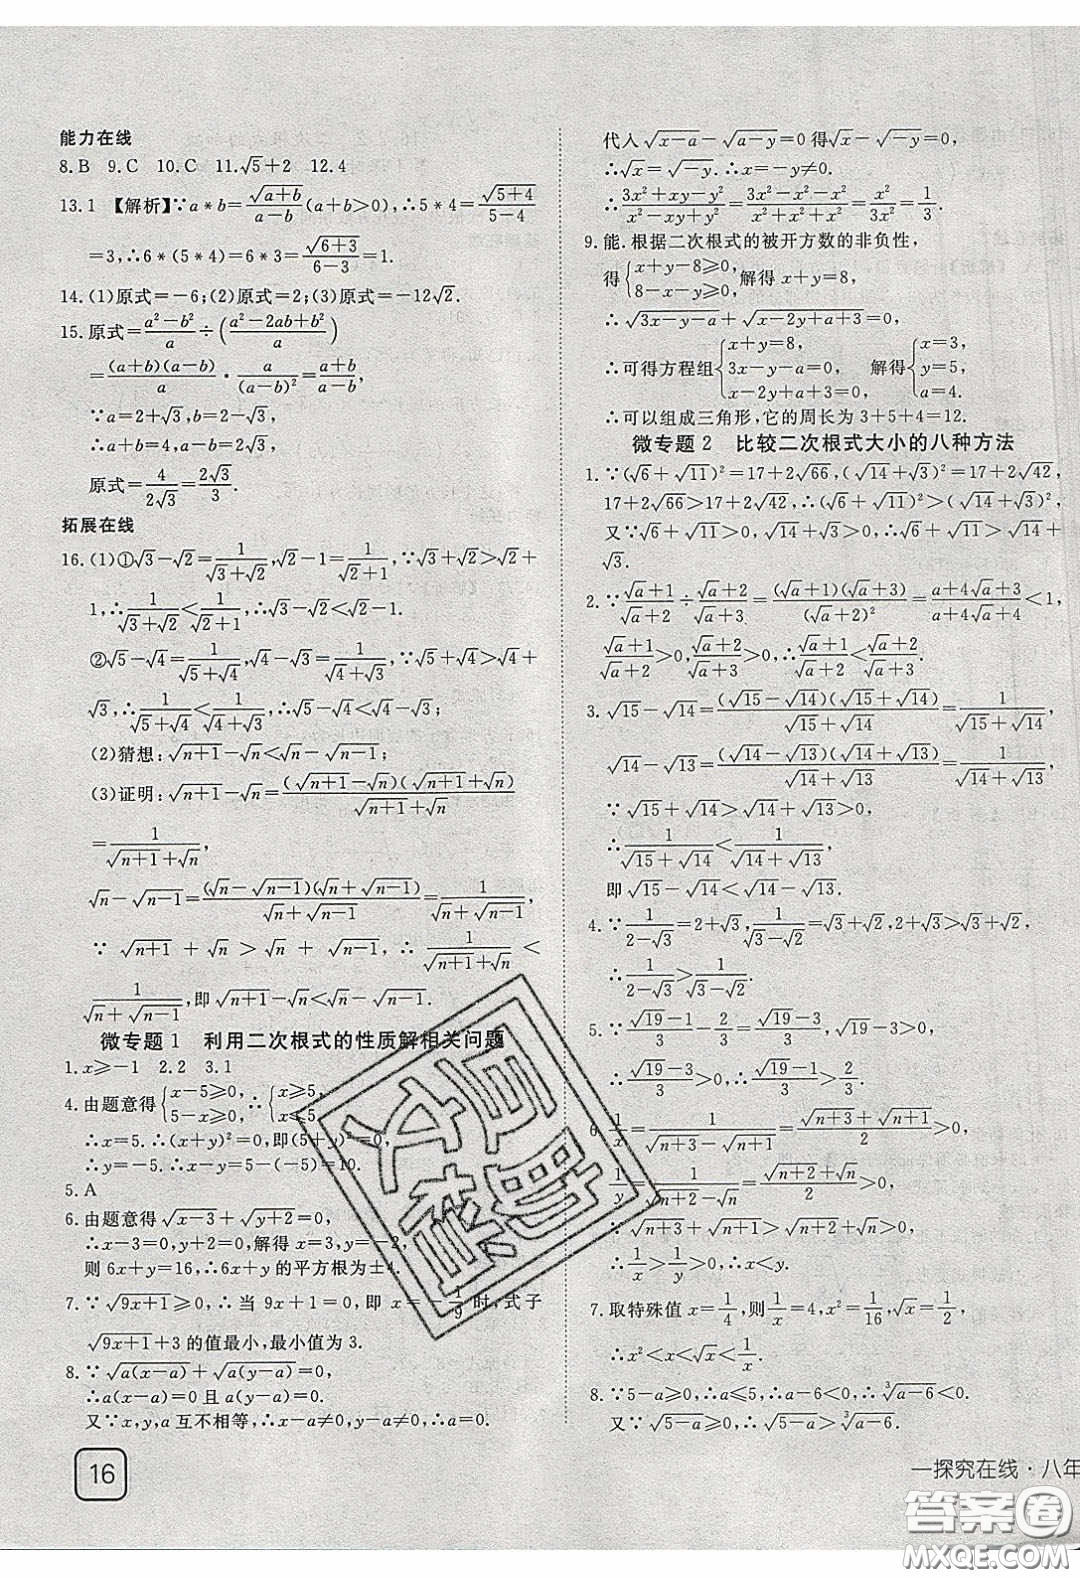 能力在线
8.B 9.C 10.C 11.√5+2 12.4
13.1 【解析】∵a*b=√(a+b)/(a-b)(a+b>0),∴5*4=√(5+4)/(5-4)
=3,∴6*(5*4)=6*3=√(6+3)/(6-3)=1.
14.(1)原式=-6;(2)原式=2;(3)原式=-12√2.
15.原式=(a²-b²)/a÷((a²-2ab+b²)/a)
=(a+b)(a-b)/a·a/(a-b)²=(a+b)/(a-b),
∵a=2+√3,b=2-√3,
∴a+b=4,a-b=2√3,
原式=4/(2√3)=2√3/3.
拓展在线
16.(1)①√3-√2=1/(√3+√2),√2-1=1/(√2+1),∵√3+√2>√2+
1,∴1/(√3+√2)<1/(√2+1),∴√3-√2<√2-1;
②√5-√4=1/(√5+√4),√4-√3=1/(√4+√3),∵√5+√4>√4+
√3,∴1/(√5+√4)<1/(√4+√3),∴√5-√4<√4-√3;
(2)猜想:√(n+1)-√n<√n-√(n-1);
(3)证明:√(n+1)-√n=(√(n+1)-√n)(√(n+1)+√n)/(√(n+1)+√n)
=1/(√(n+1)+√n),
√n-√(n-1)=(√n-√(n-1))(√n+√(n-1))/(√n+√(n-1))=1/(√n+√(n-1)),
∵ √(n+1)+√n>√n+√(n-1),∴1/(√(n+1)+√n)<
1/(√n+√(n-1)),即√(n+1)-√n<√n-√(n-1).
微专题1 利用二次根式的性质解相关问题
1.x≥-1 2.2 3.1
4.由题意得{x-5≥0,5-x≥0,∴{x≥5,x≤5,
∴x=5.∴(x+y)²=0,即(5+y)²=0,
∴y=-5.∴x-y=5-(-5)=10.
5.A
6.由题意得√(x-3)+√(y+2)=0,
∴x-3=0,y+2=0,解得x=3,y=-2,
则6x+y=16,∴6x+y的平方根为±4.
7.∵√(9x+1)≥0,∴当9x+1=0,即x=-1/9时,式子
√(9x+1)+3的值最小,最小值为3.
8.∵√(a(x-a))+√(a(y-a))=0,
∴a(x-a)=0且a(y-a)=0.
又∵x,y,a互不相等,∴x-a≠0,y-a≠0,∴a=0.
16
代入√(x-a)-√(a-y)=0得√x-√(-y)=0.
∴√x=√(-y).∴x=-y≠0.
∴(3x²+xy-y²)/(x²-xy+y²)=(3x²-x²-x²)/(x²+x²+x²)=x²/(3x²)=1/3.
9.能.根据二次根式的被开方数的非负性,
得{x+y-8≥0,8-x-y≥0,解得x+y=8.
∴√(3x-y-a)+√(x-2y+a+3)=0.
∴可得方程组{x+y=8,3x-y-a=0,x-2y+a+3=0,解得{x=3,y=5,a=4.
∴可以组成三角形,它的周长为3+5+4=12.
微专题2 比较二次根式大小的八种方法
1.∵(√6+√11)²=17+2√66,(√14+√3)²=17+2√42,
17+2√66>17+2√42,∴(√6+√11)²>(√14+√3)²,
又∵√6+√11>0,√14+√3>0,∴√6+√11>√14+
√3.
2.∵(√a+1)/(√a+2)÷(√a+2)/(√a+3)=(√a+1)(√a+3)/(√a+2)²=(a+4√a+3)/(a+4√a+4)<1,
(√a+1)/(√a+2)>0,(√a+2)/(√a+3)>0,∴(√a+1)/(√a+2)<(√a+2)/(√a+3).
3.√15-√14=(√15-√14)(√15+√14)/(√15+√14)=1/(√15+√14),
√14-√13=(√14-√13)(√14+√13)/(√14+√13)=1/(√14+√13),
∵√15+√14>√14+√13>0,
∴1/(√15+√14)<1/(√14+√13),
即√15-√14<√14-√13.
4.∵1/(2-√3)=2+√3,1/(√3-√2)=√3+√2,2+√3>√3+√2,
∴1/(2-√3)>1/(√3-√2).
5.∵(√19-1)/3-2/3=(√19-3)/3,√19>3,
∴(√19-3)/3>0,∴(√19-1)/3>2/3.
6.1/x=1/(√(n+3)-√(n+1))=(√(n+3)+√(n+1))/2>0,
1/y=1/(√(n+2)-√n)=(√(n+2)+√n)/2>0,
∵√(n+3)+√(n+1)>√(n+2)+√n>0,
∴1/x>1/y>0,∴x<y.
7.取特殊值x=1/4,则1/x=4,x²=1/16,√x=1/2,
∴x²<x<√x<1/x.
8.∵5-a≥0,∴a≤5,∴a-6<0,∴³√(a-6)<0.
又∵√(5-a)≥0,∴√(5-a)>³√(a-6).
一探究在线·八年
答案圈
MXQE.COM